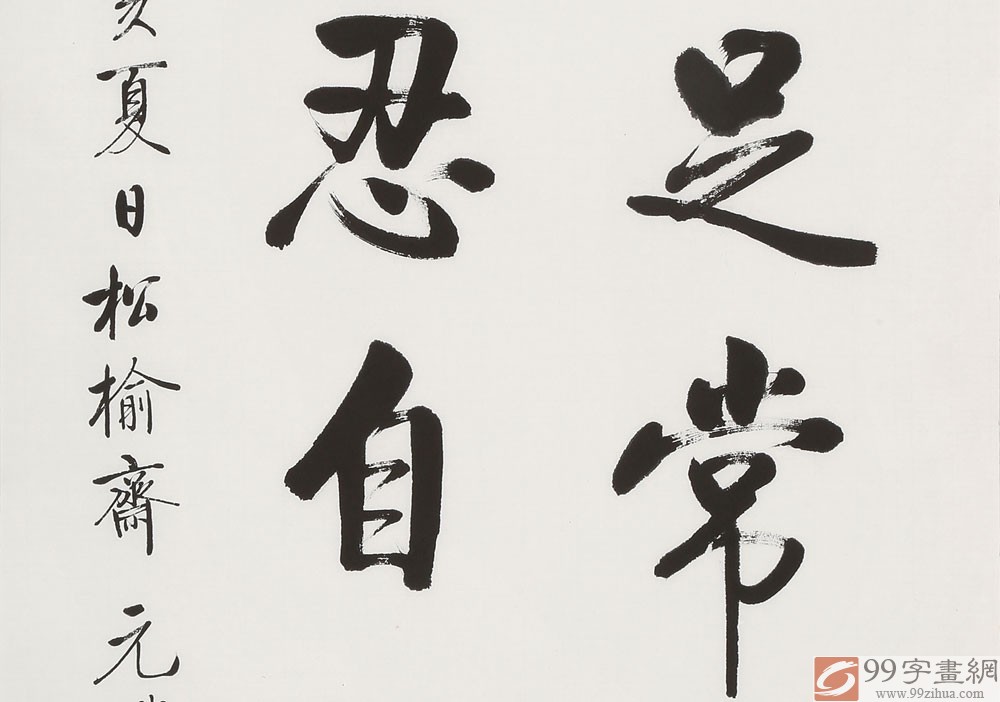 足常
忍自
亥夏日松榆齋元
99字畫網
www.99zihua.com